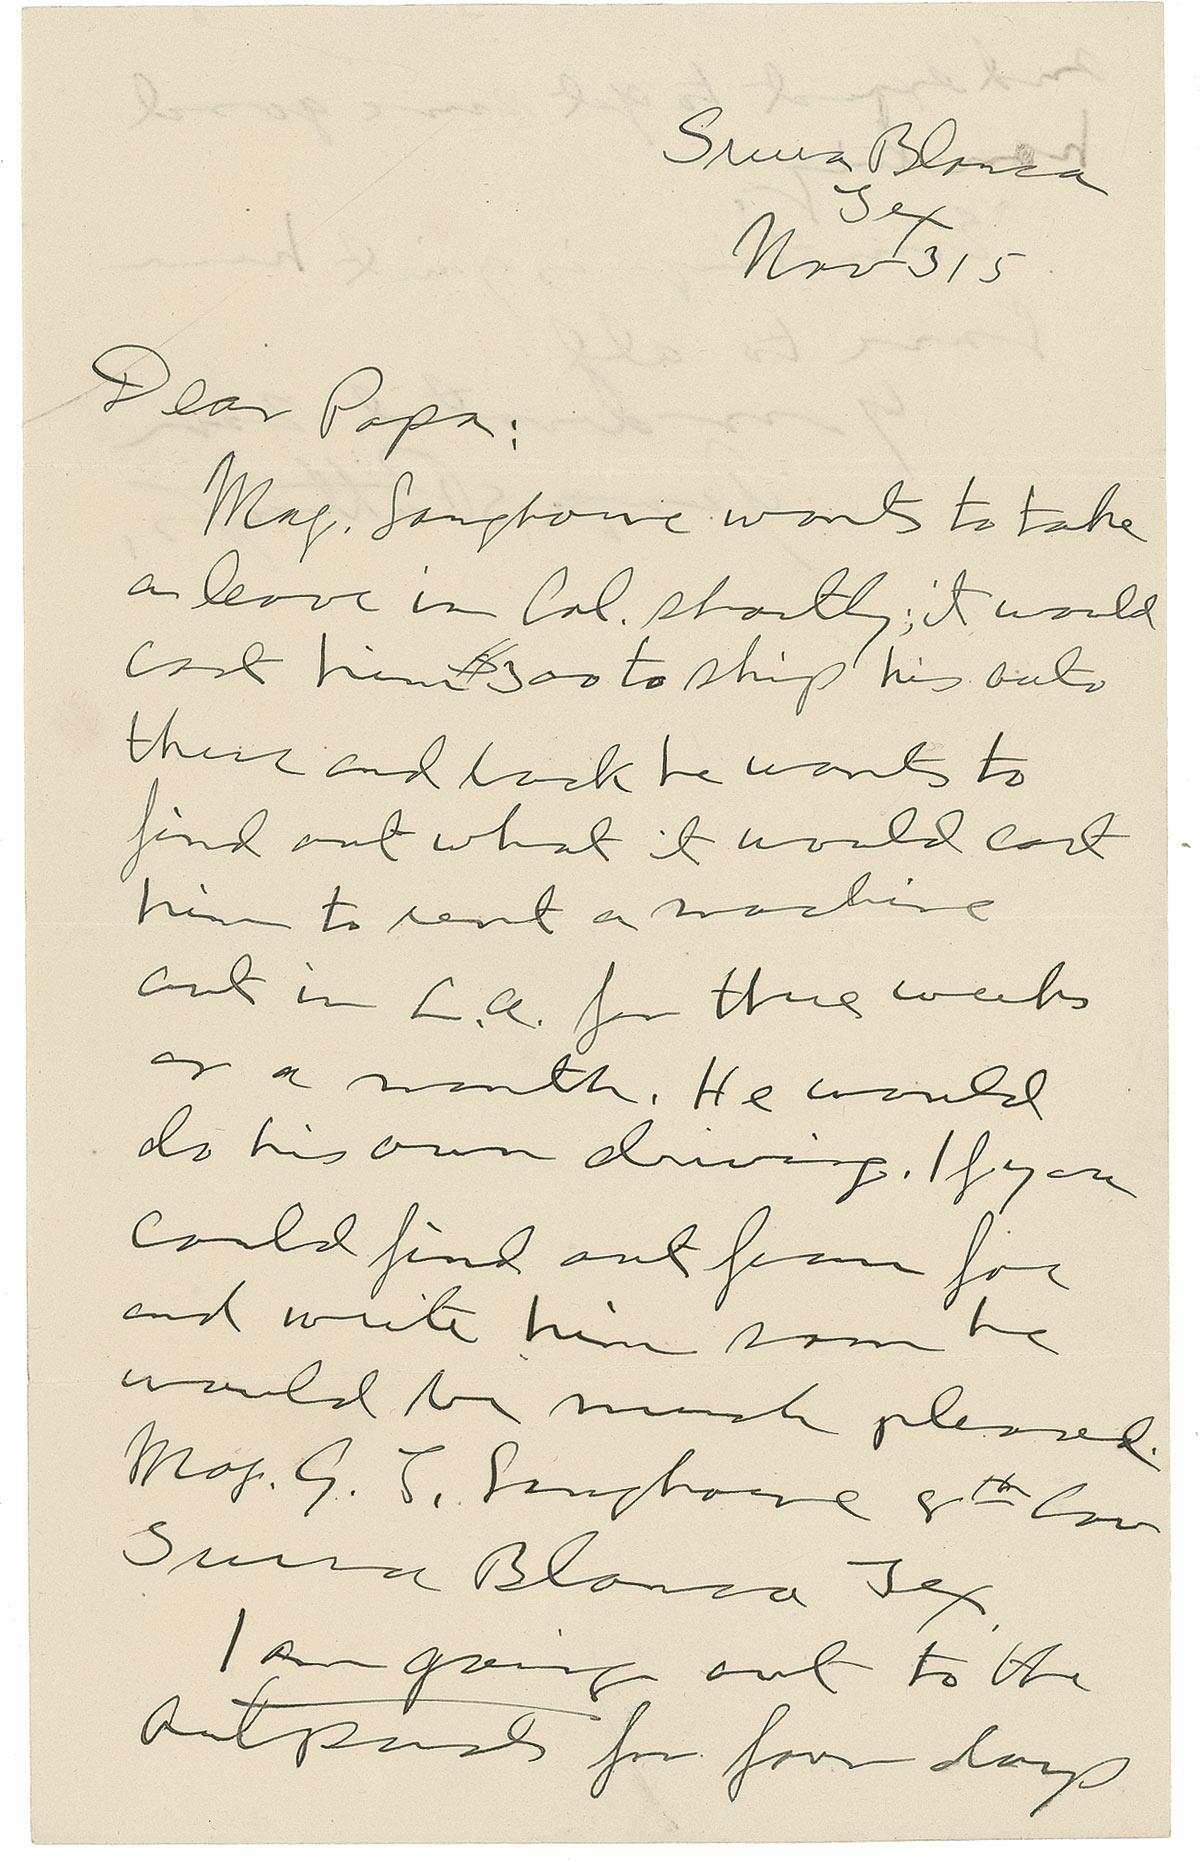 Sierra Blanca
Tex
Nov 3 15
Dear Papa:
Maj. Langhorne wants to take
a leave in Cal. shortly; it would
cost him $300 to ship his auto
there and back he wants to
find out what it would cost
him to rent a machine
out in L.A. for three weeks
or a month. He would
do his own driving. If you
could find out from for
and write him soon he
would be much pleased.
Maj. G. T. Langhorne 8th Cav
Sierra Blanca Tex.
I am going out to the
outposts for four days